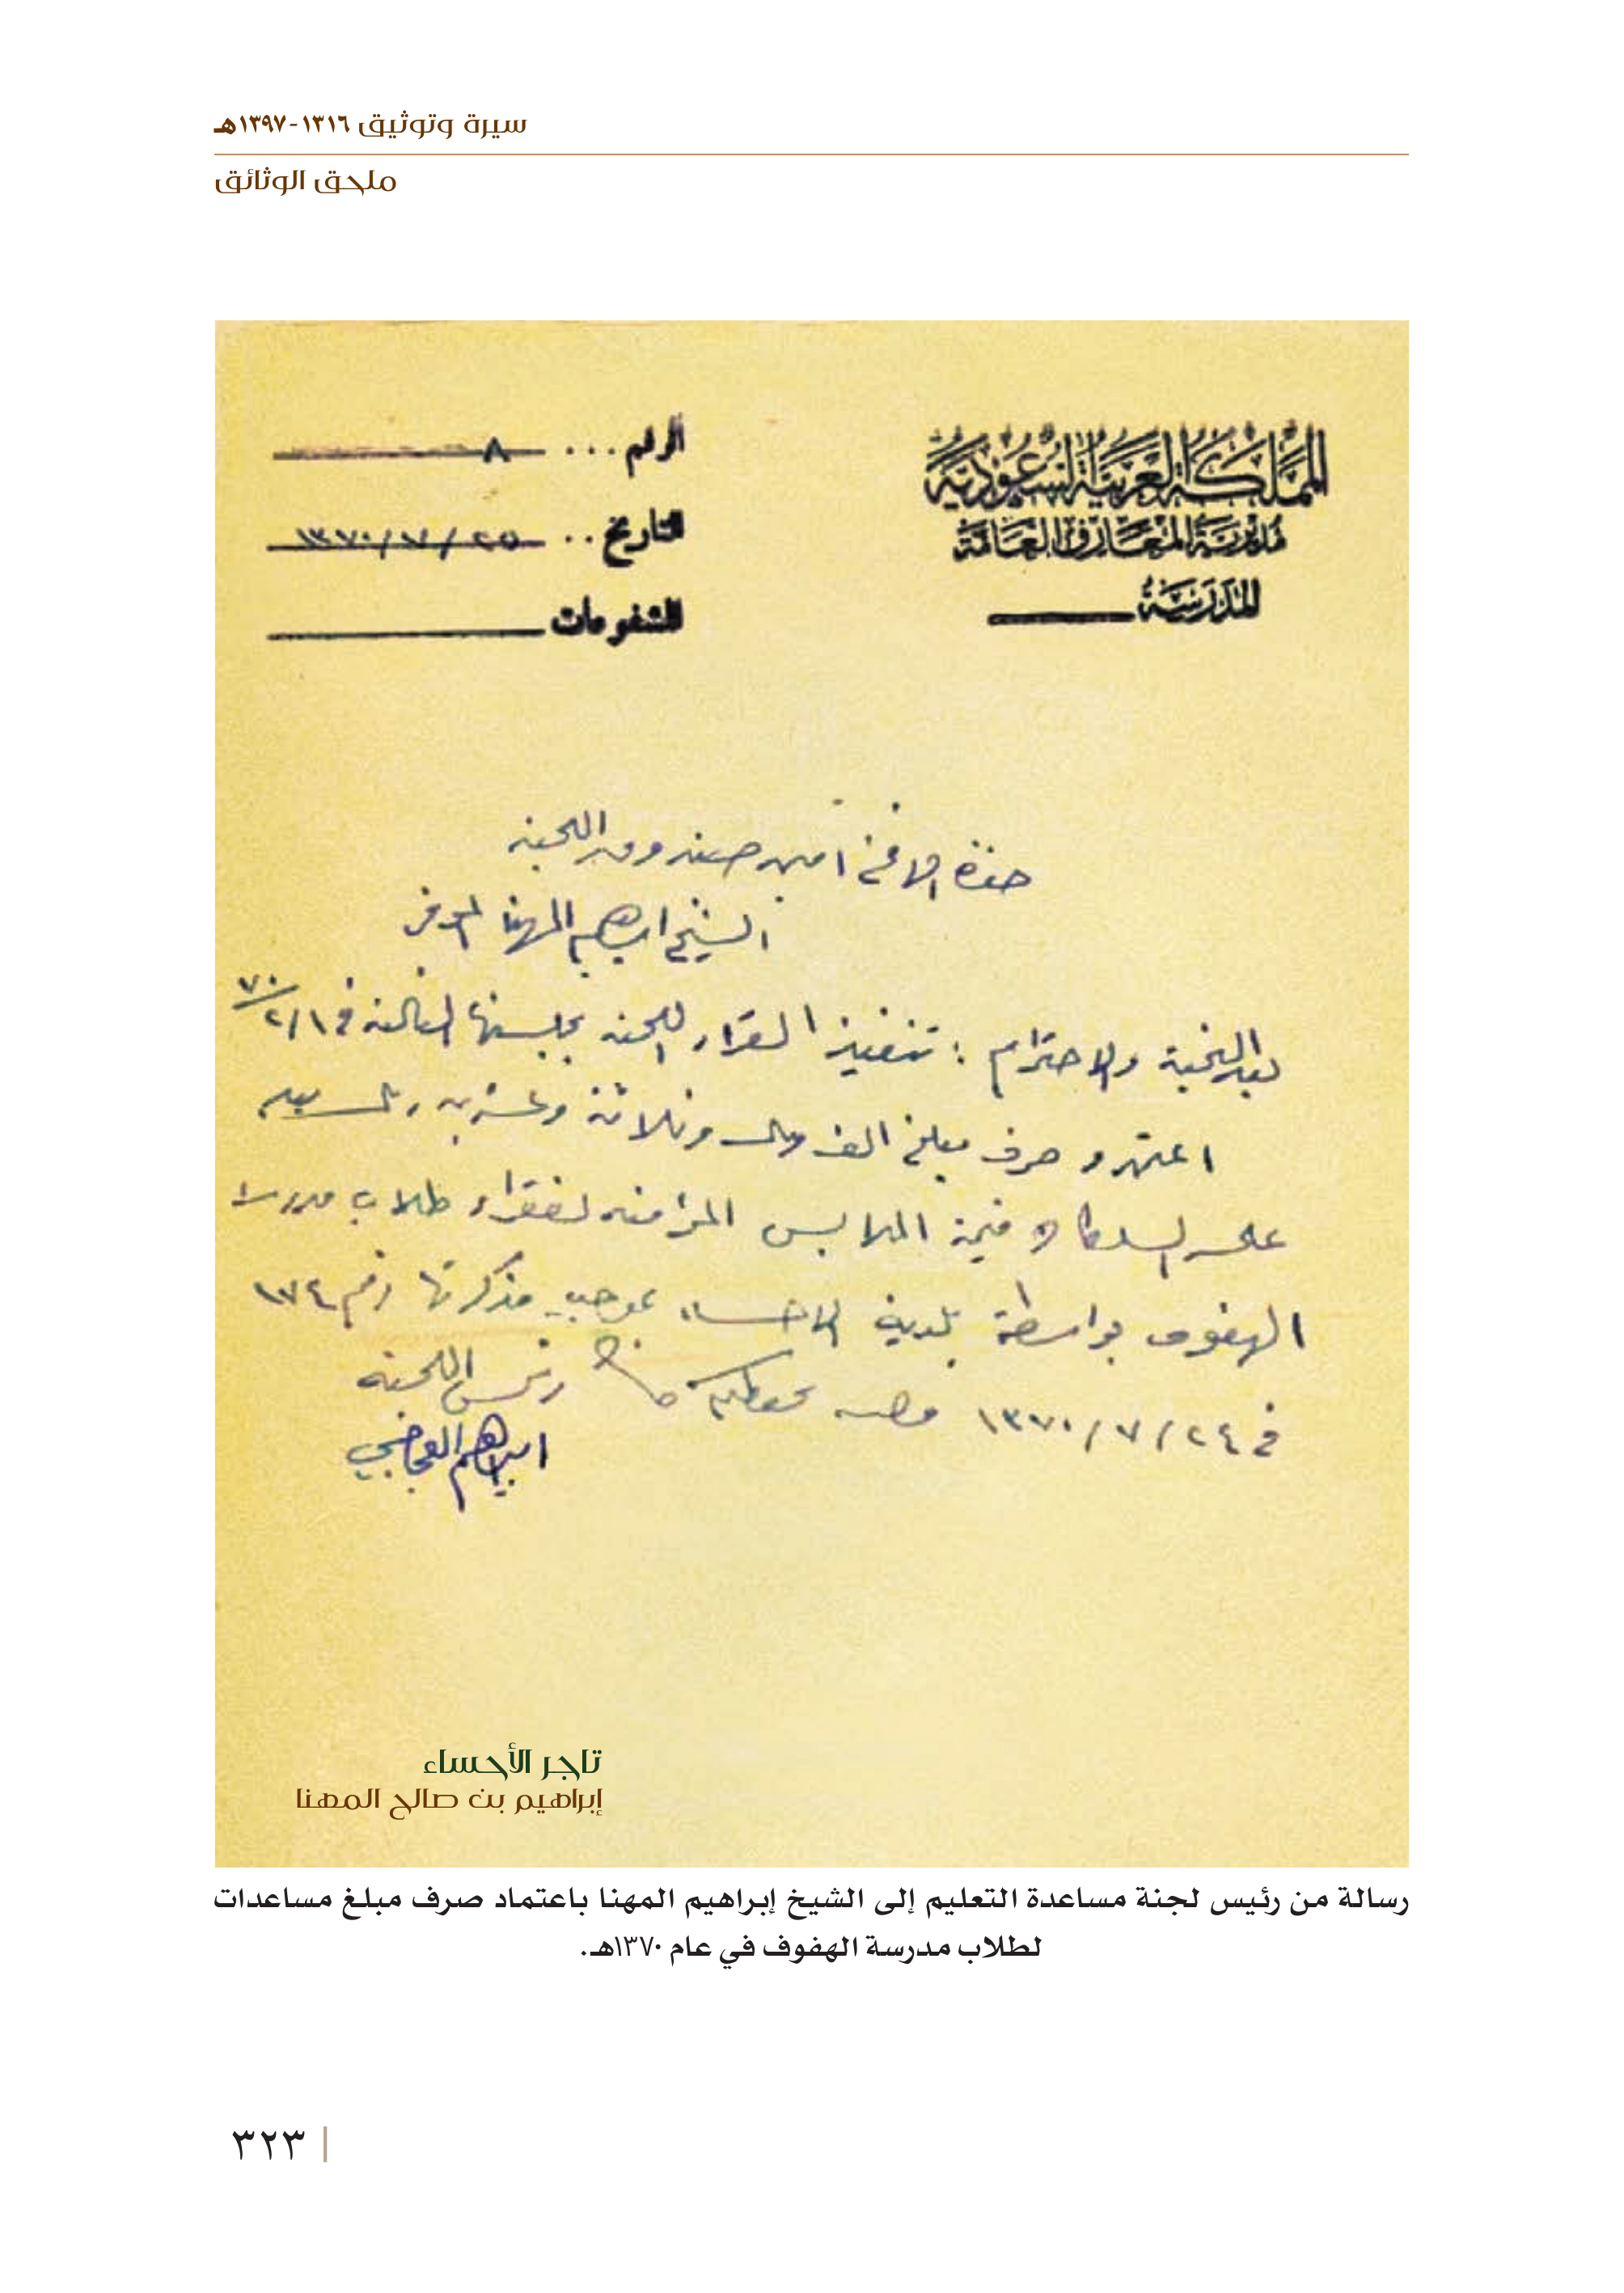 سيرة وتوثيق ١٣١٦-١٣٩٧هـ
ملحق الوثائق
المملكة العربية السعودية
مديرية المعارف العامة
المدرسة
الرقم ... ٨
التاريخ .. ٢٥/٧/١٣٧٠
المشفوعات
حضرة الاخ امين صندوق اللجنة
الشيخ ابراهيم المهنا الموقر
بعد التحية والاحترام : تنفيذ القرار اللجنه بجلستها الثالثه في ٢/١/٧٠
اعتمدو صرف مبلغ الف ومائه وثلاثة وعشرين ريال بيد
على قيمة الملابس المؤمنه لفقراء طلاب مدرسة
الهفوف بواسطة بلدية الاحساء بموجب مذكرتها رقم ١٧٤
في ٢٤/٧/١٣٧٠
رئيس اللجنه
ابراهيم
تاجر الأحساء
إبراهيم بن صالح المهنا
رسالة من رئيس لجنة مساعدة التعليم إلى الشيخ إبراهيم المهنا باعتماد صرف مبلغ مساعدات
لطلاب مدرسة الهفوف في عام ١٣٧٠هـ.
٣٢٣